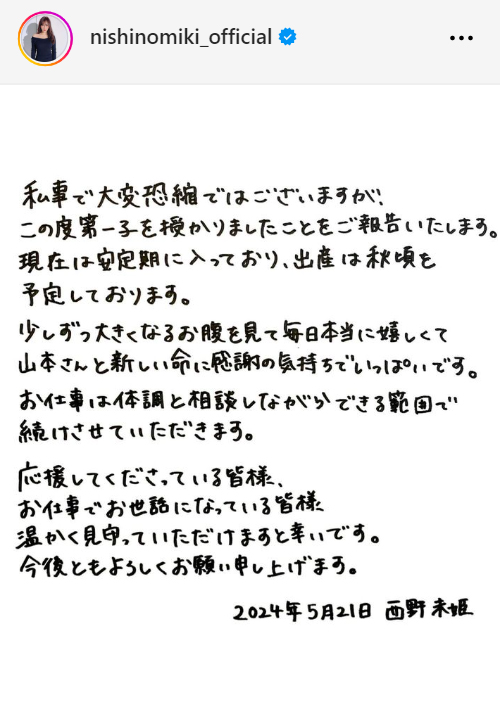 nishinomiki_official
私事で大変恐縮ではございますが、
この度第一子を授かりましたことをご報告いたします。
現在は安定期に入っており、出産は秋頃を
予定しております。
少しずつ大きくなるお腹を見て毎日本当に嬉しくて
山本さんと新しい命に感謝の気持ちでいっぱいです。
お仕事は体調と相談しながらできる範囲で
続けさせていただきます。
応援してくださっている皆様、
お仕事でお世話になっている皆様
温かく見守っていただけますと幸いです。
今後ともよろしくお願い申し上げます。
2024年5月21日 西野未姫